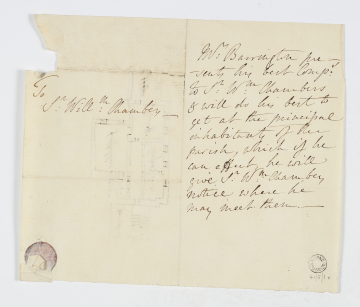 To
Sr Willm Chambers
Mr Barrington pre-
sents his best Compts
to Sr Wm Chambers
& will do his best to
get at the principal
inhabitants of her
parish, which if he
can effect, he will
give Sr Wm Chambers
notice where he
may meet them